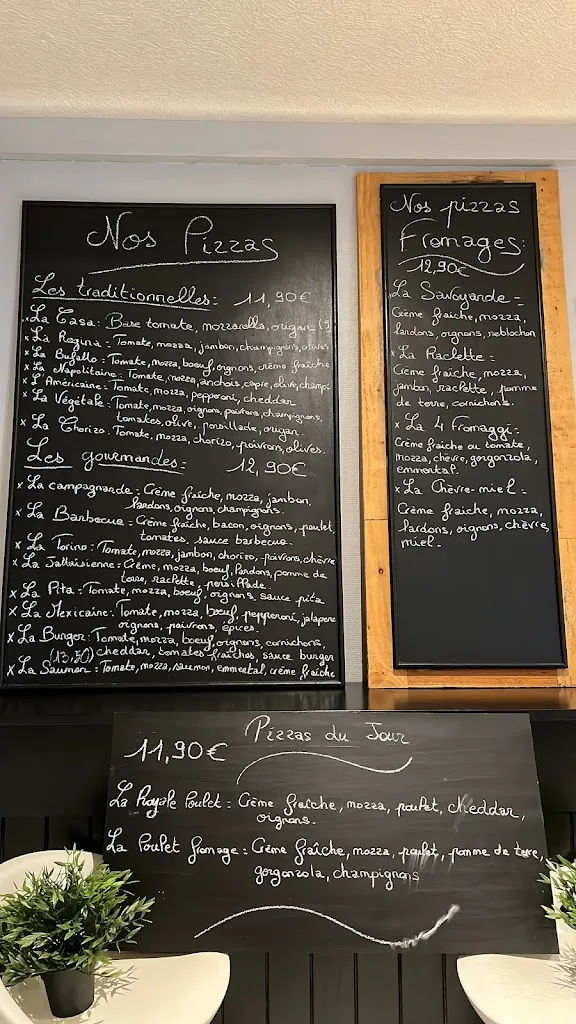 Nos Pizzas
Les traditionnelles: 11,90€
x La Casa: Base tomate, mozzarella, origan (9
x La Regina: Tomate, mozza, jambon, champignons, olives
x La Buffallo: Tomate, mozza, boeuf, oignons, crème fraîche
x La Napolitaine: Tomate, mozza, anchois, capre, olive, champi
x L'Américaine: Tomate, mozza, pepperoni, cheddar
x La Végétale: Tomate, mozza, oignons, poivrons, champignons,
tomates, olives, persillade, origan
x La Chorizo: Tomate, mozza, chorizo, poivrons, olives.
Les gourmandes: 12,90€
x La campagnarde: Crème fraîche, mozza, jambon,
lardons, oignons, champignons.
x La Barbecue: Crème fraîche, bacon, oignons, poulet,
tomates, sauce barbecue.
x La Torino: Tomate, mozza, jambon, chorizo, poivrons, chèvre
x La Jattaisienne: Crème, mozza, boeuf, lardons, pomme de
terre, raclette, persillade
x La Pita: Tomate, mozza, boeuf, oignons, sauce pita
x La Mexicaine: Tomate, mozza, boeuf, pepperoni, jalapeno
oignons, poivrons épices.
x La Burger: Tomate, mozza, boeuf, oignons, cornichons,
(13,50) cheddar, tomates fraîches, sauce burger
x La Saumon: Tomate, mozza, saumon, emmental, crème fraîche
Nos pizzas
Fromages:
12,90€
x La Savoyarde:
Crème fraîche, mozza,
lardons, oignons, reblochon
x La Raclette:
Crème fraîche, mozza,
jambon, raclette, pomme
de terre, cornichons.
x La 4 Fromaggi:
Crème fraîche ou tomate,
mozza, chèvre, gorgonzola,
emmental.
x La Chèvre-miel:
Crème fraîche, mozza,
lardons, oignons, chèvre,
miel.
Pizzas du Jour
11,90€
La Royale Poulet: Crème fraîche, mozza, poulet, cheddar,
oignons.
La Poulet fromage: Crème fraîche, mozza, poulet, pomme de terre,
gorgonzola, champignons